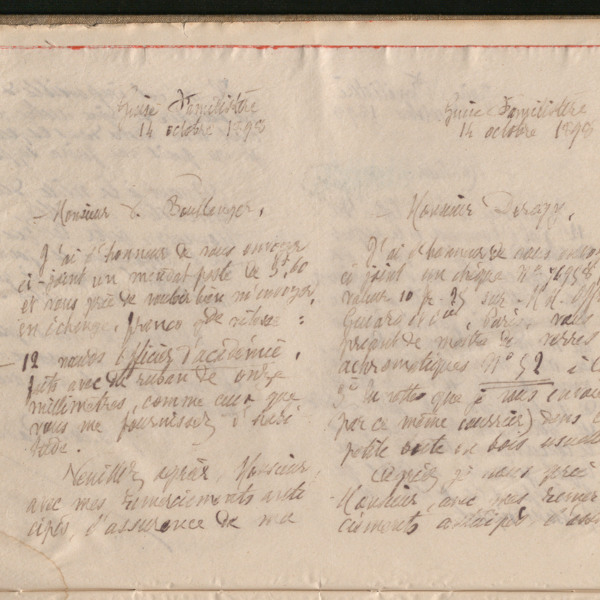 Guise Familistère
14 octobre 1898
Monsieur L. Boullenger,
J'ai l'honneur de vous envoyer
ci-joint un mandat poste de 5f,60
et vous prie de vouloir bien m'envoyer,
en échange, franco gde vitesse :
— 12 noeuds officier d'académie,
faits avec du ruban de onze
millimètres, comme ceux que
vous me fournissez d'habi
tude.
Veuillez agréer, Monsieur,
avec mes remerciements anti
cipés, l'assurance de ma
Guise Familistère
14 octobre 1898
Monsieur Derogy,
J'ai l'honneur de vous
ci joint un chèque
valeur 10 fr. 25 sur
et Cie, Paris, vous
priant de mettre verres
achromatiques N° 52 à
que je vous
par ce même courrier) dans
petite boîte en bois
je vous prie
Monsieur, avec mes remer
ciements anticipés